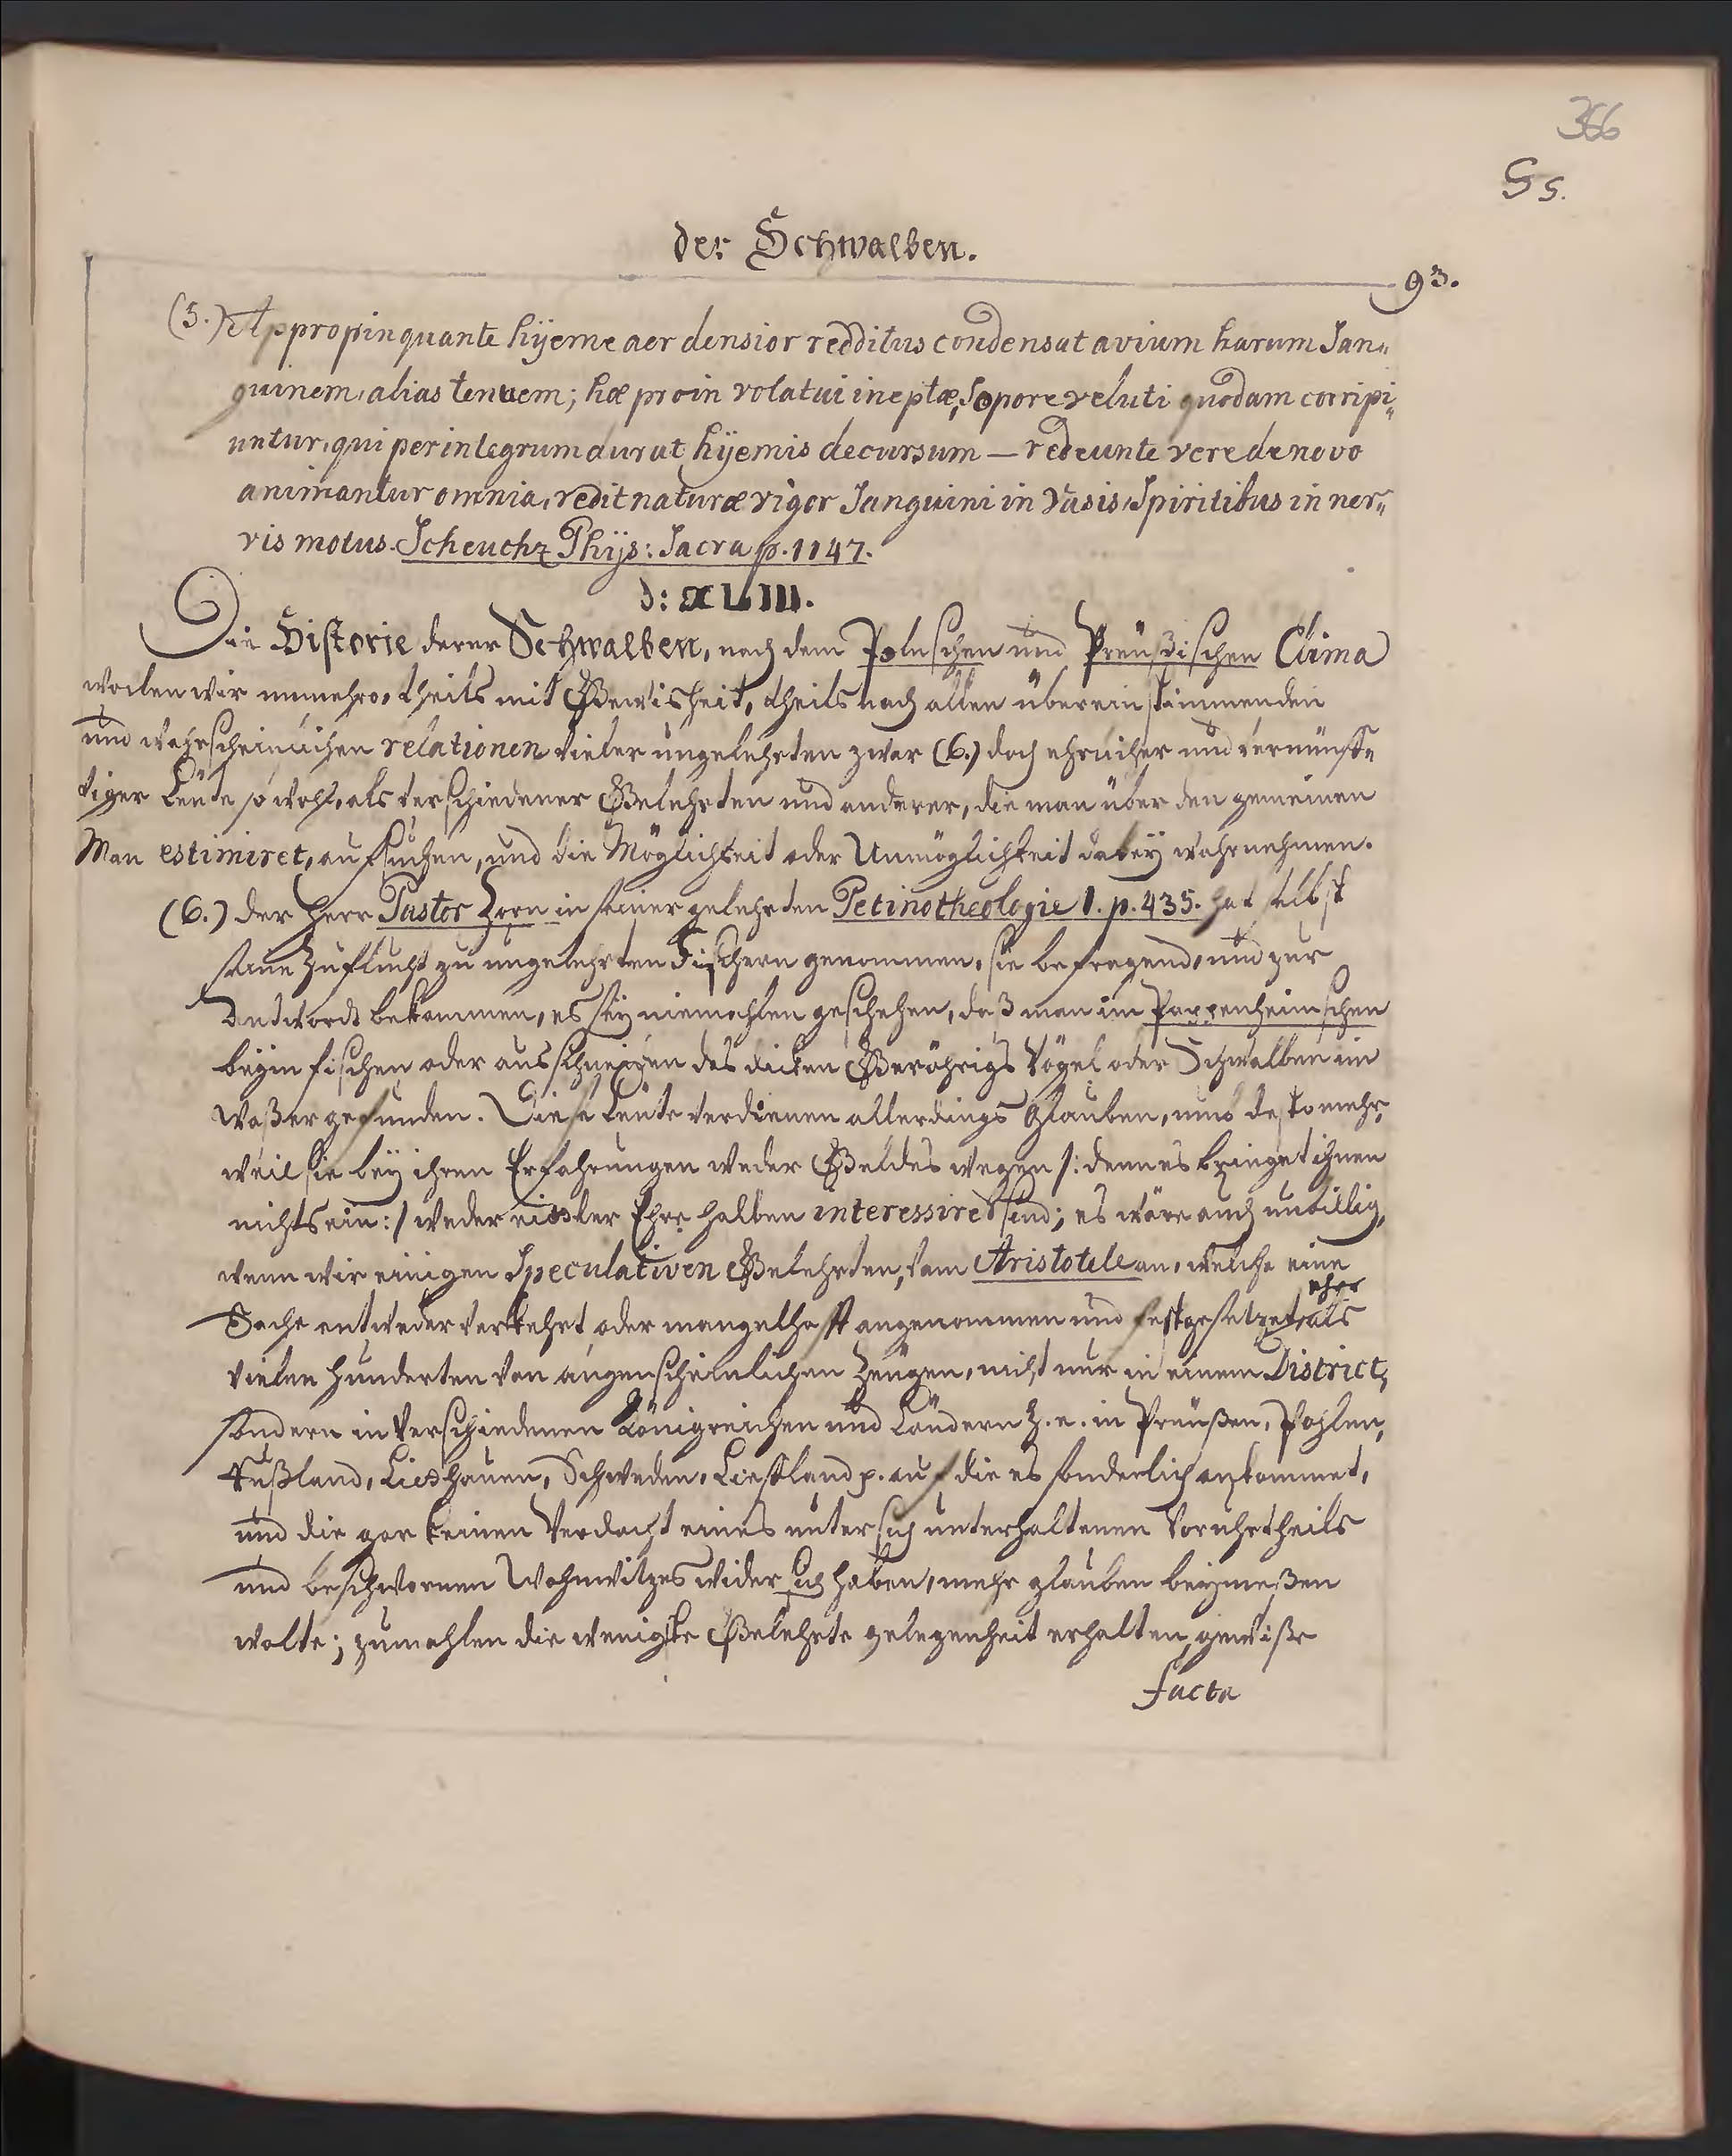 366
G s.
der Schwalben.
93.
(5.) Appropinquante hÿeme aer densior redditus condensat avium harum San„
guinem, alias tenuem; hæ proin volatui ineptæ, Sopore veluti quodam corripi„
untur, qui per integrum durat hÿemis decursum — redeunte vere denovo
animantur omnia, redit naturæ vigor Sanguini in Vasis, Spiritibus in ner„
vis motus. Scheuchz Phÿs: Sacra p. 1147.
§: XLIII.
Die Historie derer Schwalben, nach dem Polnschen und Preußischen Clima
wollen wir nunmehro, theils mit Gewisheit, theils nach allen übereinstimmenden
und wahrscheinlichen relationen vieler ungelehrten zwar (6.) doch ehrlicher und vernünff„
tiger Leute so wohl, als verschiedener Gelehrten und anderer, die man über den gemeinen
Man estimiret, aufsuchen, und die Möglichkeit oder Unmöglichkeit dabeÿ wahrnehmen.
(6.) der Herr Pastor Zorn in seiner gelehrten Petinotheologie 1. p. 435. hat selbst
seine Zuflucht zu ungelehrten Fischern genommen, sie befragend, und zur
Andtwordt bekommen, es seÿ niemahlen geschehen, daß man im Pappenheimschen
beÿm fischen oder ausschneiden des dicken Geröhrigs Vögel oder Schwalben im
Waßer gefunden. Diese Leute verdienen allerdings Glauben, umb desto mehr,
weil sie beÿ ihren Erfahrungen weder Geldes wegen /: denn es bringet ihnen
nichts ein :/ weder eitler Ehre halben interessiret sind; es wäre auch unbillig,
wenn wir einigen Speculativen Gelehrten, vom Aristotele an, welche eine
Sache entweder verkehrt oder mangelhafft angenommen und festgesetzet, eher als
vielen hunderten von augenscheinlichen Zeugen, nicht nur in einem District,
sondern in verschiedenen Königreichen und Ländern z. e. in Preußen, Pohlen,
Rußland, Litthauen, Schweden, Liefland p. auf die es sonderlich ankommet,
und die gar keinen Verdacht eines unter sich unterhaltenen Vorurtheils
und beschwornen Wahnwitzes wider sich haben, mehr glauben beÿmeßen
wolte; zumahlen die wenigste Gelehrte gelegenheit erhalten, gewiße
facta